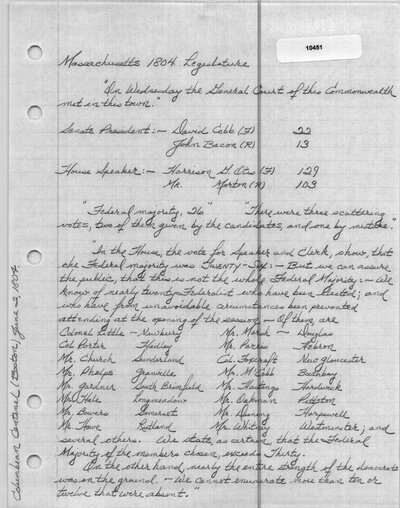 10451
Massachusetts 1804 Legislature
"On Wednesday the General Court of this Commonwealth
met in this town."
Senate President:— David Cobb (F) 22
John Bacon (R) 13
House Speaker:— Harrison G. Otis (F) 129
Mr. Morton (R) 103
"Federal majority, 26" "There were three scattering
votes, two of them given by the candidates, and one by mistake."
"In the House, the vote for Speaker and Clerk, show, that
the Federal majority was TWENTY-SIX:— But we can assure
the public, that this is not the whole Federal Majority:— We
know of nearly twenty Federalist who have been elected; and
who have from unavoidable circumstances been prevented
attending at the opening of the session — Of them, are
Colonel Little — Newbury Mr. Marsh — Douglas
Col. Porter Hadley Mr. Parris Hebron
Mr. Church Sunderland Col. Foxcroft New Gloucester
Mr. Phelps Granville Mr. McCobb Boothbay
Mr. Gardner South Brimfield Mr. Hastings Hardwick
Mr. Hale Longmeadow Mr. Wakman Pittston
Mr. Bowers Somerset Mr. Dunning Harpswell
Mr. Howe Rutland Mr. Whitney Westminster; and
several others. We state, as certain, that the Federal
Majority of the members chosen, exceeds Thirty.
On the other hand, nearly the entire strength of the democrats
was on the ground. — We cannot enumerate more than ten or
twelve that were absent."
Columbian Centinel (Boston), June 2, 1804